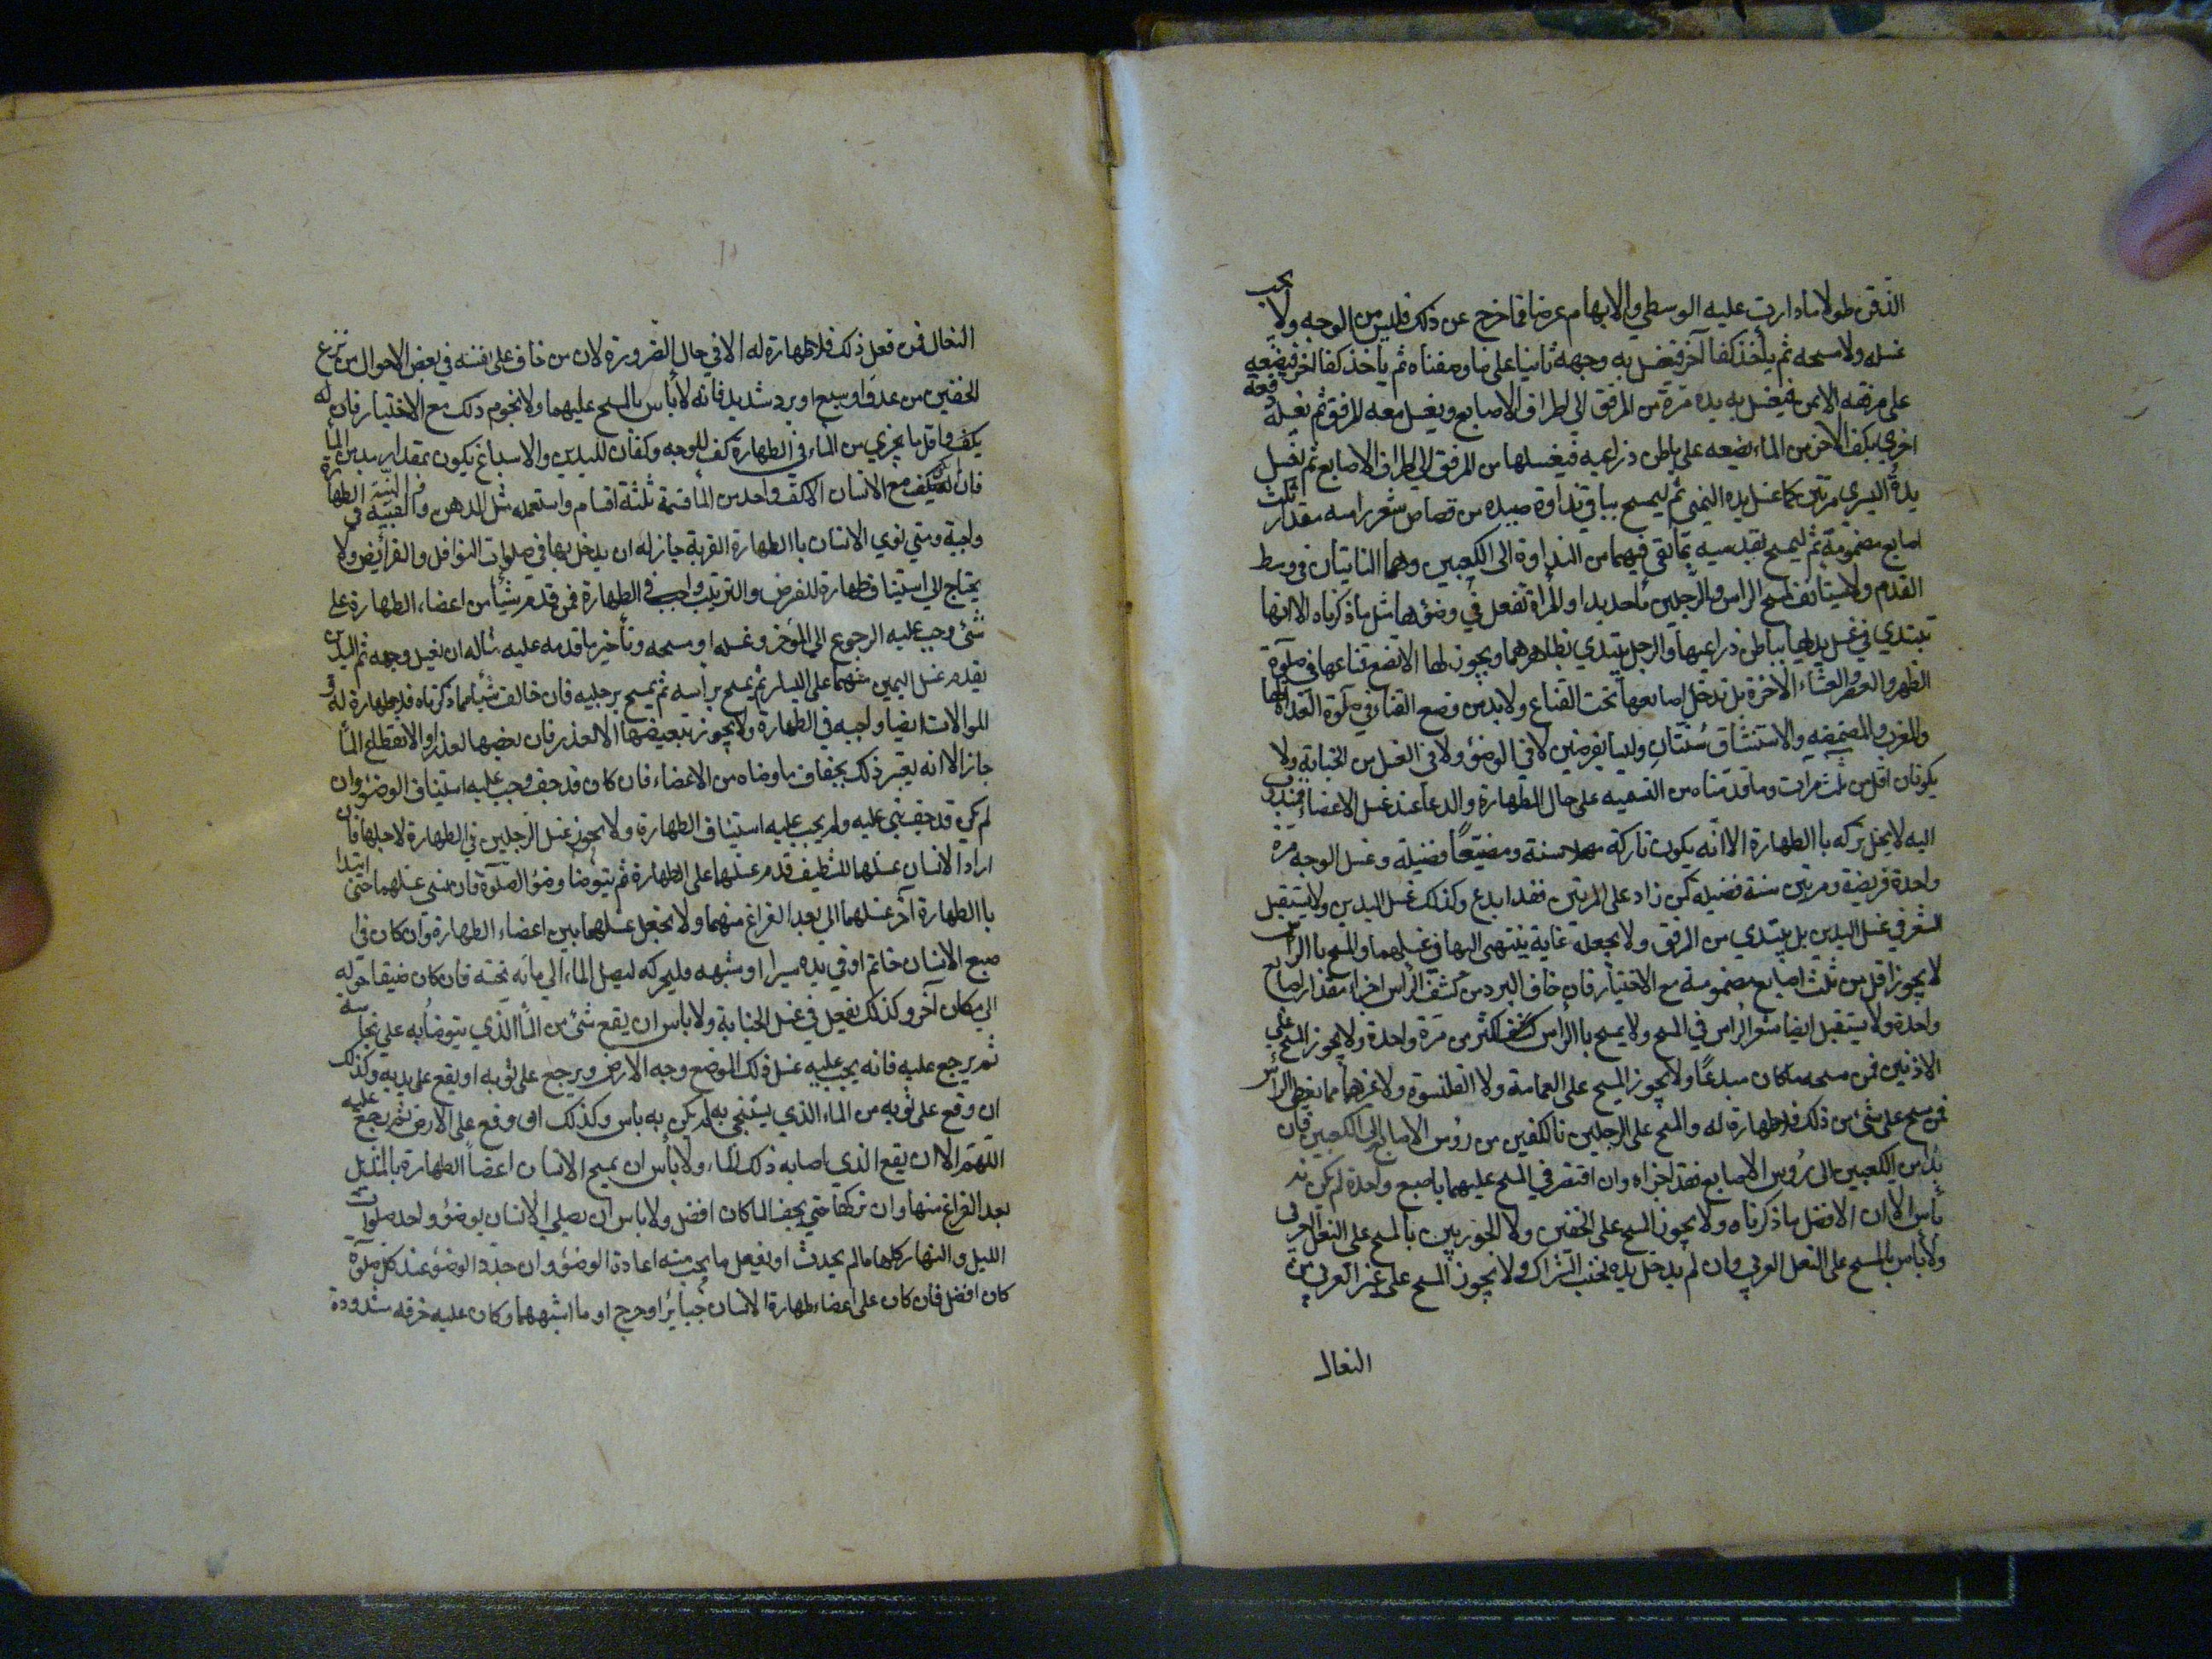 الذقن طولا ما دارت عليه الوسطي والابهام عرضا فما خرج عن ذلك فليس من الوجه ولا يجب
غسله ولا مسحه ثم يأخذ كفا آخر فيغسل به وجهه ثانيا على ما وصفناه ثم يأخذ كفا آخر فيضعه
على مرفقه الايمن فيغسل به يده مرة من المرفق الى اطراف الاصابع ويغسل معه المرفق ثم يغسله دفعة
اخرى بكف الاخر من الماء يضعه على باطن ذراعيه فيغسلها من المرفق الى اطراف الاصابع ثم يغسل
يده اليسري مرتين كما غسل يده اليمنى ثم ليمسح بباقي نداوة يده من قصاص شعر راسه مقدار ثلث
اصابع مضمومة ثم ليمسح بقدميه بما بقى فيهما من النداوة الى الكعبين وهما النابتان في وسط
القدم ولا يستانف لمسح الراس والرجلين ماء جديدا والمراة تفعل في وضؤها مثل ما ذكرناه الا انها
تبتدي في غسل يديها بباطن ذراعيها والرجل يبتدي بظاهرهما ويجوز لها الا تضع قناعها في صلوة
الظهر والعصر والعشاء الاخرة بل تدخل اصابعها تحت القناع ولا بد من وضع القناع في صلوة الغداة لها
والمغرب والمضمضه والاستنشاق سنتان وليسا بفرضين لا في الوضؤ ولا في الغسل من الجنابة ولا
يكونان اقل من ثلث مرات وما قدمناه من التسميه على حال الطهارة والدعا عند غسل الاعضاء فمندوب
اليه لا يخل تركه باالطهارة الا انه يكون تاركه سنة ومضيعا فضيلة وغسل الوجه مرة
واحدة فريضة ومرتين سنة فضيلة فمن زاد على المرتين فقد ابدع وكذلك غسل اليدين ولا يستقبل
الشعر في غسل اليدين بل يبتدي من المرفق ولا يجعله غاية ينتهى اليها في غسلهما والمسح باالراس
لا يجوز اقل من ثلث اصابع مضمومة مع الاختيار فان خاف البرد من كشف الراس اجزاه مقدار اصابع
واحدة ولا يستقبل ايضا شعر الراس في المسح ولا يمسح باالراس اكثر من مرة واحدة ولا يجوز المسح على
الاذنين فمن مسحهما كان مبدعا ولا يجوز المسح على العمامة ولا القلنسوة ولا غيرهما مما يغطى الراس
فمن مسح على شئ من ذلك فلا طهارة له والمسح على الرجلين باالكفين من رؤس الاصابع الى الكعبين فان
بدا من الكعبين الى رؤس الاصابع فقد اجزاه وان اقتصر في المسح عليهما باصبع واحدة لم يكن به
بأس الا ان الافضل ما ذكرناه ولا يجوز المسح على الخفين ولا الجوربين باالمسح على النعل العربي
ولا بأس بالمسح على النعل العربي وان لم يدخل يده تحت الشراك ولا يجوز المسح على غير العربي من
النعال
النعال فمن فعل ذلك فلا طهارة له الا في حال الضرورة لان من خاف على نفسه في بعض الاحوال من نزع
الخفين من عدو او سبع او برد شديد فانه لا بأس بالمسح عليهما ولا يجوز ذلك مع الاختيار فان له
يكف واقل ما يجزي من الماء في الطهارة كف للوجه وكفان لليدين والاسباغ يكون بمقدار مد من الماء
فان لم يكن مع الانسان الا كف واحد من الماء قسمه ثلثة اقسام واستعمله مثل الدهن والنية في الطهارة
واجبة ومتي نوي الانسان باالطهارة القربة جاز له ان يدخل بها في صلوات النوافل والفرائض ولا
يحتاج الى استيناف طهارة للفرض والترتيب واجب في الطهارة فمن قدم شيأ من اعضاء الطهارة على
شئ وجب عليه الرجوع الى المؤخر وغسله او مسحه وتأخير ما قدمه عليه مثاله ان يغسل وجهه ثم اليدين
يقدم غسل اليمين منهما على اليسار ثم يمسح براسه ثم يمسح برجليه فان خالف شيأ مما ذكرناه فلا طهارة له و
الموالات ايضا واجبه في الطهارة ولا يجوز تبعيضها الا لعذر فان بعضها لعذر او لانقطاع الماء
جاز الا انه يعتبر ذلك بجفاف ما وضاه من الاعضاء فان كان قد جف وجب عليه استيناف الوضؤ وان
لم يكن قد جف بنى عليه ولم يجب عليه استيناف الطهارة ولا يجوز غسل الرجلين في الطهارة لاجلها فان
اراد الانسان غسلها للتنظيف قدم غسلها على الطهارة ثم يتوضا وضؤ الصلوة فان نسى غسلهما حتى ابتدا
باالطهارة اخر غسلهما الى بعد الفراغ منهما ولا يجعل غسلهما بين اعضاء الطهارة وان كان في ا
صبع الانسان خاتم او في يده سير او شبهه فليحركه ليصل الماء الى ما تحته فان كان ضيقا حوله
الى مكان آخر وكذلك يفعل في غسل الجنابة ولا باس ان يقع شئ من الماء الذي يتوضا به على نجاسة
ثم يرجع عليه فانه يجب عليه غسل ذلك الموضع وجه الارض ويرجع على ثوبه او يقع على يديه وكذلك
ان وقع على ثوبه من الماء الذي يستنجي به لم يكن به باس وكذلك ان وقع على الارض ثم يرجع عليه
اللهم الا ان يقع الذي اصابه ذلك الماء ولا بأس ان يمسح الانسان اعضا الطهارة بالمنديل
بعد الفراغ منها وان تركها حتي يجف الما كان افضل ولا باس ان يصلي الانسان بوضؤ واحد صلوات
الليل والنهار كلها ما لم يحدث او يفعل ما يجب منه اعادة الوضؤ وان جدد الوضؤ عند كل صلوة
كان افضل فان كان على اعضاء طهارة الانسان جبائر او جرح او ما اشبههما وكان عليه خرقه مشدودة